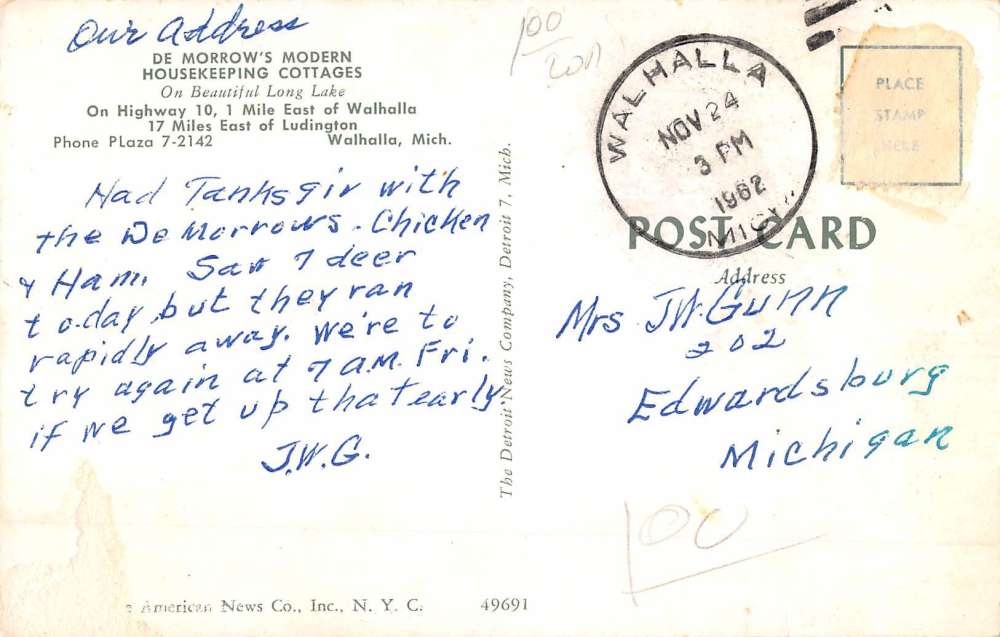 Our Address
DE MORROW'S MODERN
HOUSEKEEPING COTTAGES
On Beautiful Long Lake
On Highway 10, 1 Mile East of Walhalla
17 Miles East of Ludington
Phone PLaza 7-2142 Walhalla, Mich.
Had Tanksgiv with
the DeMorrows. Chicken
& Ham. Saw 7 deer
today but they ran
rapidly away. We're to
try again at 7 A.M. Fri.
if we get up that early
J.W.G.
American News Co., Inc., N. Y. C. 49691
The Detroit News Company, Detroit 7, Mich.
100
WALHALLA
NOV 24
3 PM
1962
MICH.
PLACE
STAMP
HERE
POST CARD
Address
Mrs J.W. Gunn
202
Edwardsburg
Michigan
100